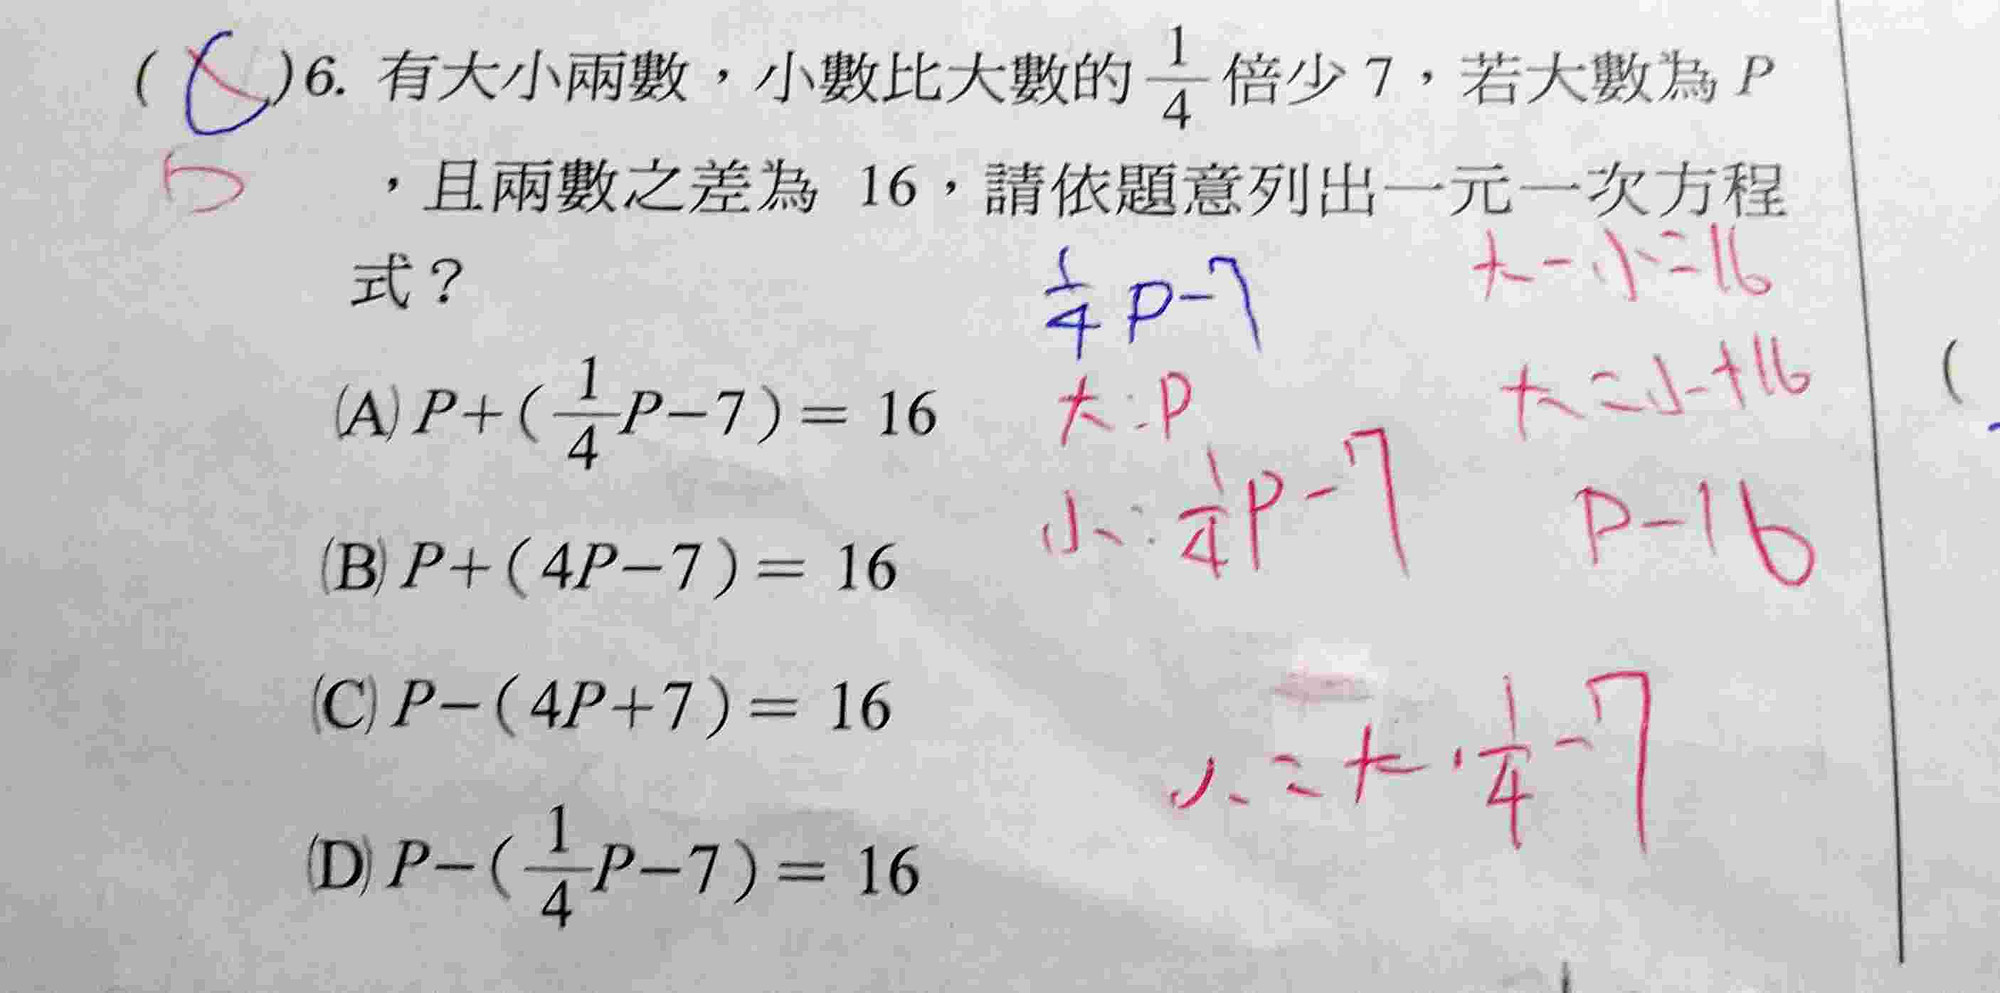 ( C )6. 有大小兩數，小數比大數的 1/4 倍少 7，若大數為 P
D
，且兩數之差為 16，請依題意列出一元一次方程
式？
1/4 P-7
大-小=16
(A) P+(1/4P-7)= 16
大:P
大=小+16
小:1/4P-7
P-16
(B) P+(4P-7)= 16
(C) P-(4P+7)= 16
小=大·1/4-7
(D) P-(1/4P-7)= 16
(